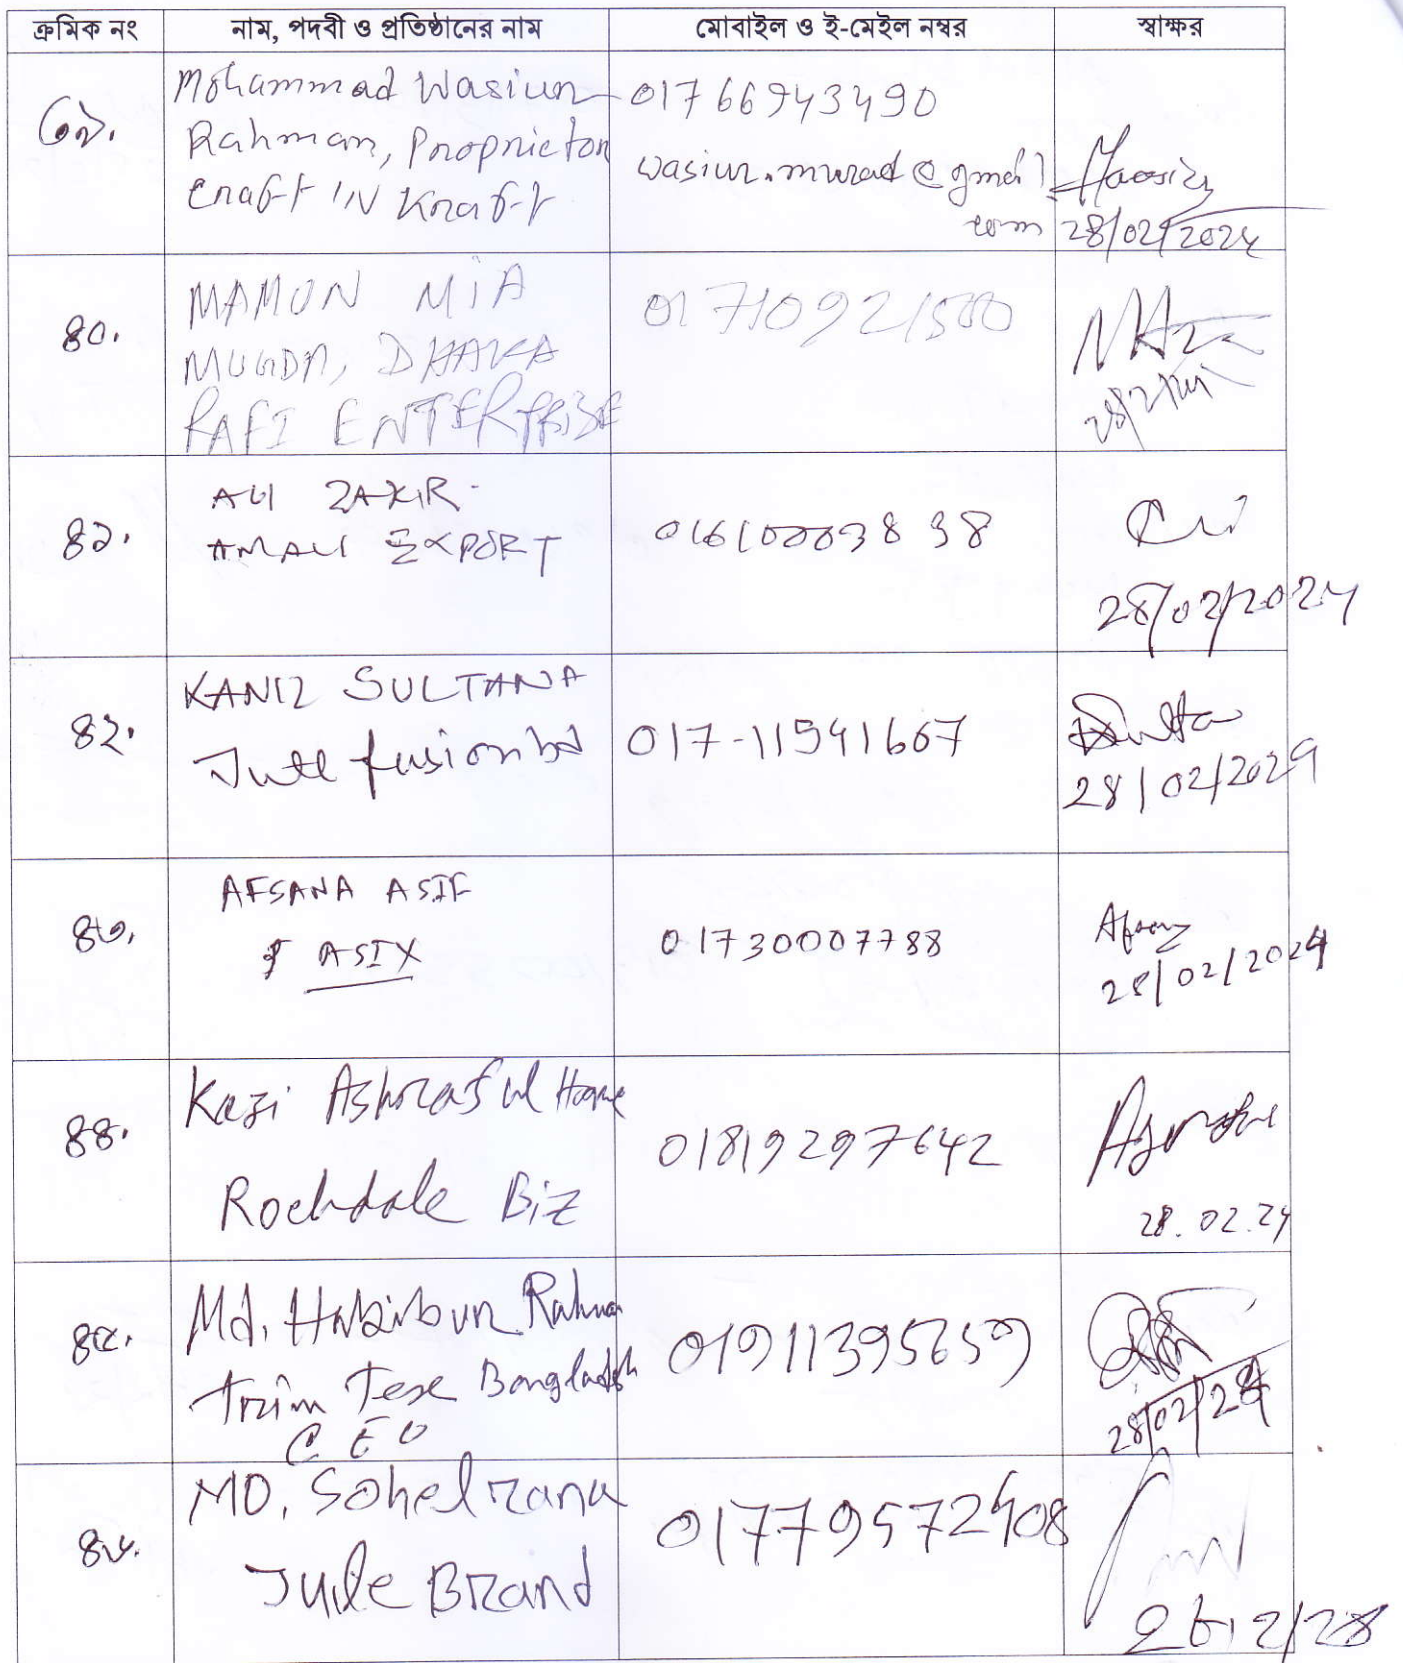 ক্রমিক নং নাম, পদবী ও প্রতিষ্ঠানের নাম মোবাইল ও ই-মেইল নম্বর স্বাক্ষর
৩৯.
Mohammad Wasiur
Rahman, Proprietor
Craft IN Kraft
01766943490
wasiur.murad@gmail
com
28/02/2024
৪০.
MAMUN MIA
MUGDA, DHAKA
RAFI ENTERPRISE
01710921500
28/2/24
৪১.
ALI ZAKIR
AMALI EXPORT
01610003838
28/02/2024
৪২.
KANIZ SULTANA
Jute fusion bd
017-11541667
28/02/2024
৪৩.
AFSANA ASIF
ASIX
01730007788
28/02/2024
৪৪.
Kazi Ashraful Haque
Rochdale Biz
01819297642
28.02.24
৪৫.
Md. Habibur Rahman
Trim Tex Bangladesh
CEO
01911395659
28/02/24
৪৬.
MD. Sohel rana
Jute Brand
01779572408